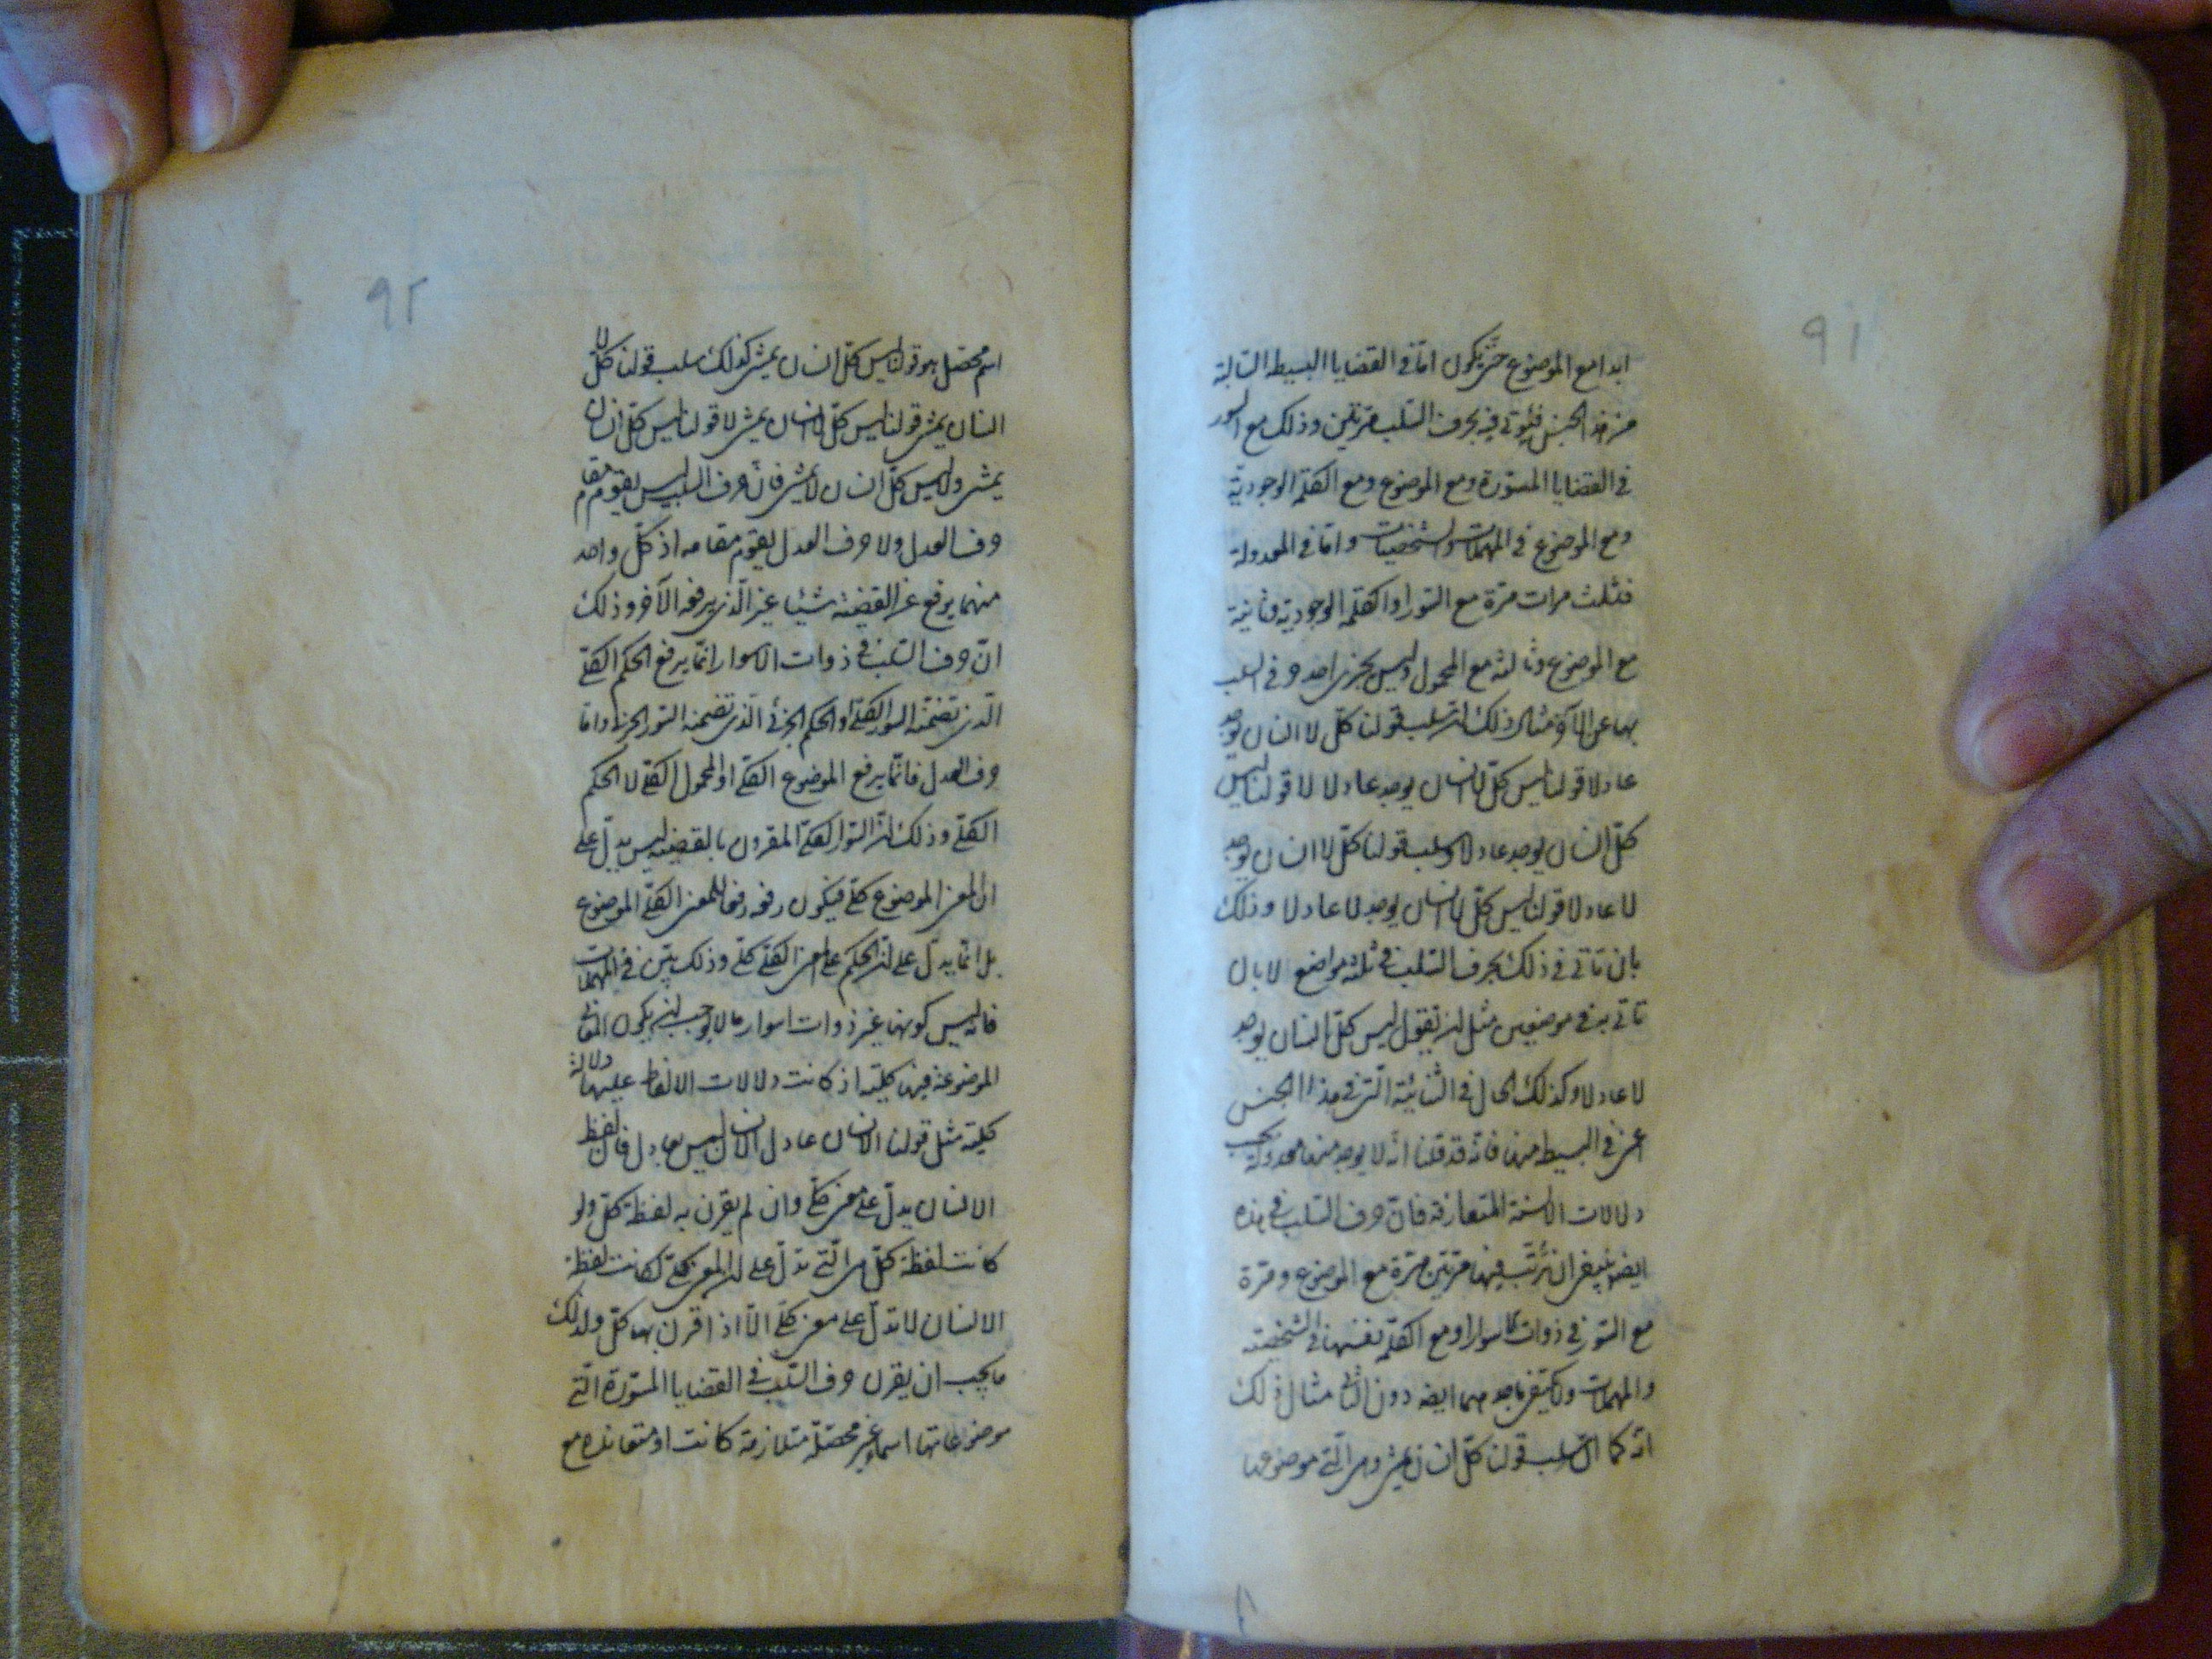 ٩١
ابدا مع الموضوع حتى يكون اما في القضايا البسيطه السالبة
من هذا الجنس فيؤتى فيه بحرف السلب مرتين وذلك مع السور
في القضايا المسورة ومع الموضوع ومع الكلمة الوجودية
ومع الموضوع في المهملات والشخصيات واما في المعدولة
فثلث مرات مرة مع السور او الكلمة الوجودية وثانية
مع الموضوع وثالثة مع المحمول وليس يجزى احد حرفي السلب
بها عن الآخر مثال ذلك ان سلب قولنا كل لا انسان يوجد
عادلا قولنا ليس كل لا انسان يوجد عادلا لا قولنا ليس
كل انسان يوجد عادلا وسلب قولنا كل لا انسان يوجد
لا عادلا قولنا ليس كل لا انسان يوجد لا عادلا وذلك
بان تاتى في ذلك بحرف السلب في ثلثة مواضع لا بان
تاتى به في موضعين مثل ان تقول ليس كل انسان يوجد
لا عادلا وكذلك الحال في الثنائية التى في هذا الجنس
اعنى في البسيطه منها فانه قد قلنا انه لا يوجد منها معدولة بحسب
دلالات الالسنة المتعارفة فان حرف السلب في هذه
ايضا ينبغى ان نرتب فيها مرتين مرة مع الموضوع ومرة
مع السور في ذوات الاسوار او مع الكلمة نفسها في الشخصية
والمهملات ولا يكتفى باحدهما ايضا دون الثانى مثال ذلك
انه كما ان سلب قولنا كل انسان يمشى وهى التى موضوعها
٩٢
اسم محصل هو قولنا ليس كل انسان يمشى كذلك سلب قولنا كل لا
انسان يمشى قولنا ليس كل لا انسان يمشى لا قولنا ليس كل انسان
يمشى وليس كل انسان لا يمشى فان حرف السلب ليس يقوم مقام
حرف العدل ولا حرف العدل يقوم مقامه اذ كل واحد
منهما يرفع عن القضية شيئا غير الذى يرفعه الآخر وذلك
ان حرف السلب في ذوات الاسوار انما يرفع الحكم الكلى
الذى تضمنه السور الكلى او الحكم الجزئى الذى تضمنه السور الجزئى واما
حرف العدل فانما يرفع الموضوع الكلى او المحمول الكلى لا الحكم
الكلى وذلك ان السور الكلى المقرون بالقضية ليس يدل على
ان المعنى الموضوع كلى فيكون رفعه رفعا للمعنى الكلى الموضوع
بل انما يدل على ان الحكم على المعنى الكلى كلى وذلك بين في المهملات
فانه ليس كونها غير ذوات اسوار مما لا يوجب ان يكون المعانى
الموضوعة فيها كلية اذ كانت دلالات الالفاظ عليها دلالة
كلية مثل قولنا الانسان عادل الانسان ليس بعادل فان لفظ
الانسان يدل على معنى كلى وان لم يقرن به لفظة كل ولو
كانت لفظة كل هى التى تدل على ان المعنى كلى لكانت لفظة
الانسان لا تدل على معنى كلى الا اذا قرن بها كل ولذلك
ما يجب ان يقرن حرف السلب في القضايا المسورة التى
موضوعاتها اسماء غير محصلة متلازمة كانت او متعاندة مع